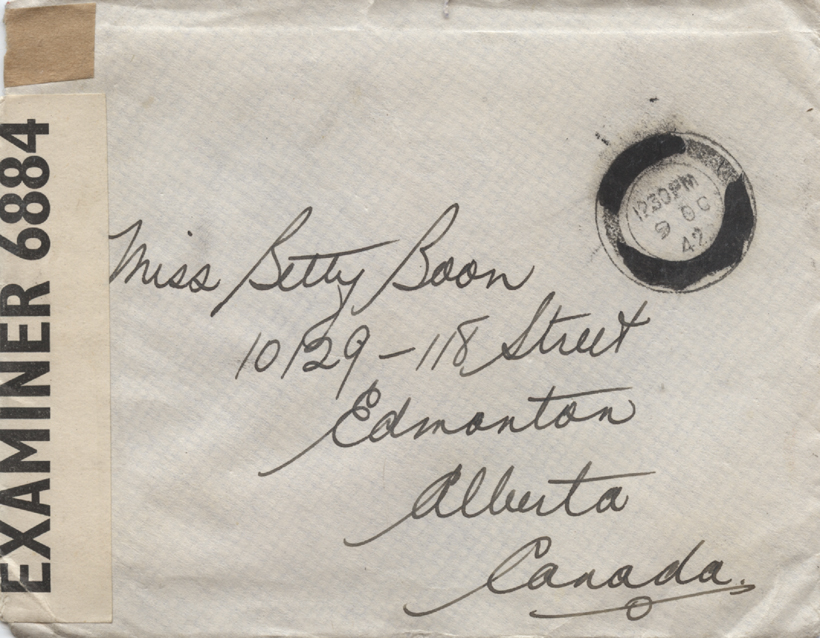 EXAMINER 6884
12 30 PM
9 OC
42
Miss Betty Boon
10129 - 118 Street
Edmonton
Alberta
Canada.